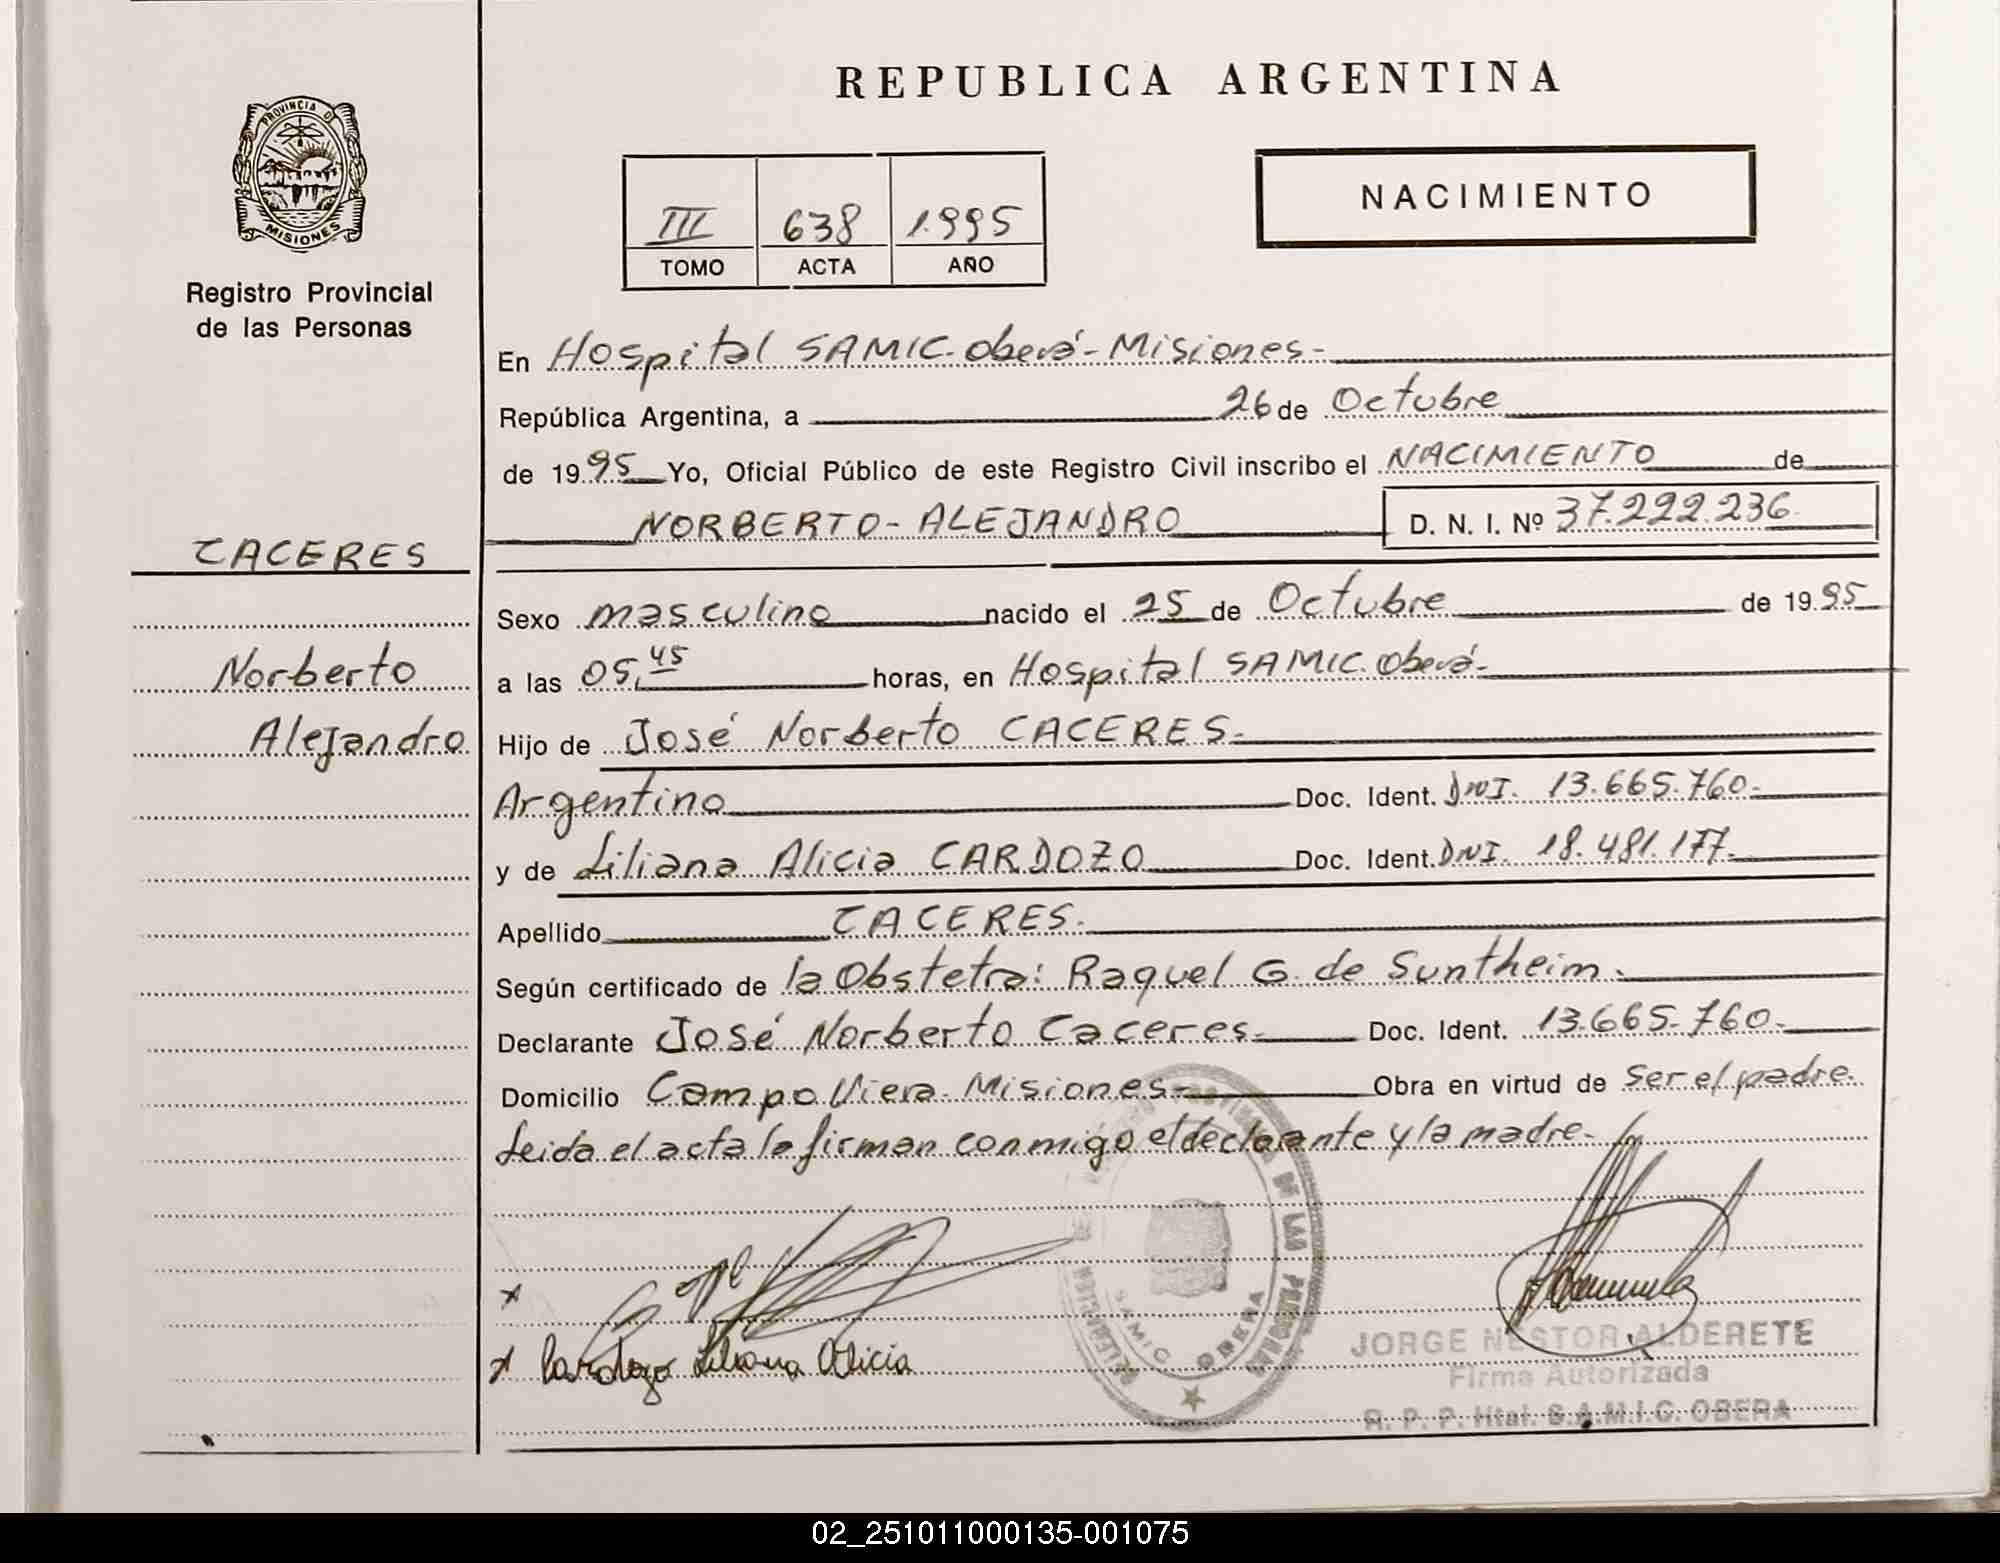 REPUBLICA ARGENTINA
PROVINCIA D
MISIONES
Registro Provincial
de las Personas
NACIMIENTO
III 638 1.995
TOMO ACTA AÑO
En Hospital SAMIC. Oberá - Misiones -
República Argentina, a 26 de Octubre
de 1995 Yo, Oficial Público de este Registro Civil inscribo el NACIMIENTO de
NORBERTO - ALEJANDRO D. N. I. Nº 37.222.236
CACERES
Norberto
Alejandro
Sexo masculino nacido el 25 de Octubre de 1995
a las 05,45 horas, en Hospital SAMIC. Oberá -
Hijo de José Norberto CACERES.-
Argentino Doc. Ident. DNI. 13.665.760.-
y de Liliana Alicia CARDOZO Doc. Ident. DNI. 18.481.177.-
Apellido CACERES.-
Según certificado de la Obstetra: Raquel G. de Suntheim.-
Declarante José Norberto Caceres.- Doc. Ident. 13.665.760.-
Domicilio Campo Viera. Misiones.- Obra en virtud de Ser el padre.
Leida el acta la firman conmigo el declarante y la madre.-
x
x Cardozo Liliana Alicia
DE LAS PERSONAS
SAMIC OBERA
JORGE NESTOR ALDERETE
Firma Autorizada
R. P. P. Htal. S.A.M.I.C. OBERA
02_251011000135-001075